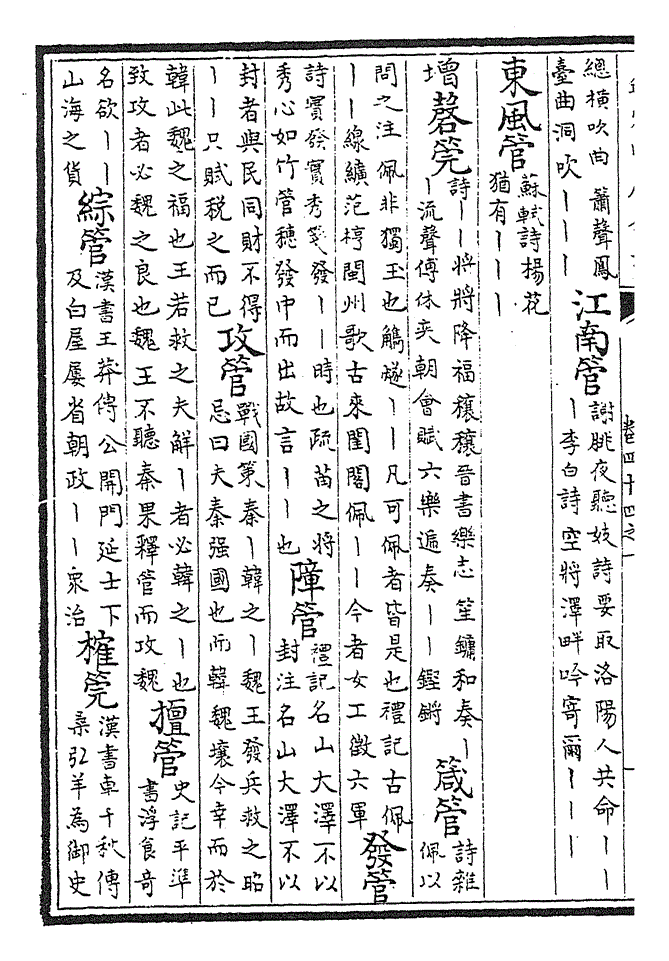 總橫吹曲簫聲鳳
臺曲洞吹丨丨丨
江南管
謝朓夜聽妓詩要取洛陽人共命丨丨
丨李白詩空將澤畔吟寄爾丨丨丨
東風管
蘇軾詩楊花
猶有丨丨丨
增
磬筦
詩丨丨將將降福穰穰晉書樂志笙鏞和奏丨
丨流聲傅休奕朝會賦六樂遍奏丨丨鏗鏘
箴管
詩雜
佩以
問之注佩非獨玉也觿燧丨丨凡可佩者皆是也禮記古佩
丨丨線纊范梈閩州歌古來閨閤佩丨丨今者女工徵六軍
發管
詩實發實秀箋發丨丨時也疏苗之將
秀心如竹管穗發中而出故言丨丨也
障管
禮記名山大澤不以
封注名山大澤不以
封者與民同財不得
丨丨只賦稅之而已
攻管
戰國策秦丨韓之丨魏王發兵救之昭
忌曰夫秦强國也而韓魏壤今幸而於
韓此魏之福也王若救之夫解丨者必韓之丨也
致攻者必魏之良也魏王不聽秦果釋管而攻魏
擅管
史記平準
書浮食奇
名欲丨丨
山海之貨
綜管
漢書王莽傳公開門延士下
及白屋屢省朝政丨丨衆治
榷筦
漢書車千秋傳
桑弘羊為御史
卷四十四之一